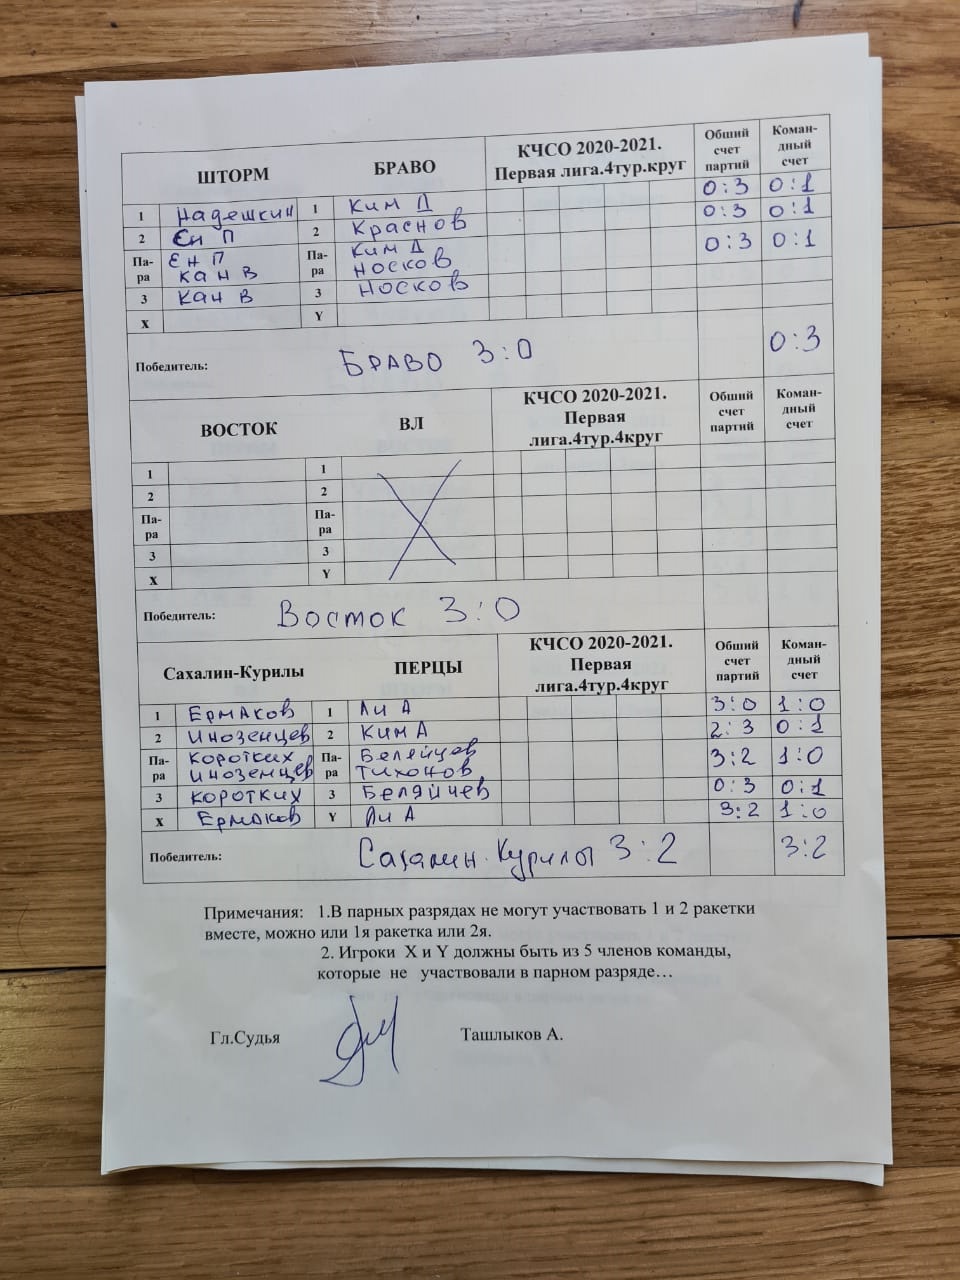 ШТОРМ БРАВО КЧСО 2020-2021. Первая лига.4тур.круг Общий счет партий Коман-дный счет
1 Надешкин 1 Ким Д 0:3 0:1
2 Ен П 2 Краснов 0:3 0:1
Па-ра Ен П Кан В Па-ра Ким Д Носков 0:3 0:1
3 Кан В 3 Носков
X Y
Победитель: БРАВО 3:0 0:3
ВОСТОК ВЛ КЧСО 2020-2021. Первая лига.4тур.4круг Общий счет партий Коман-дный счет
1 1
2 2
Па-ра Па-ра
3 3
X Y
Победитель: Восток 3:0
Сахалин-Курилы ПЕРЦЫ КЧСО 2020-2021. Первая лига.4тур.4круг Общий счет партий Коман-дный счет
1 Ермаков 1 Ли А 3:0 1:0
2 Иноземцев 2 Ким А 2:3 0:1
Па-ра Коротких Иноземцев Па-ра Беляйцев Тихонов 3:2 1:0
3 Коротких 3 Беляйцев 0:3 0:1
X Ермаков Y Ли А 3:2 1:0
Победитель: Сахалин-Курилы 3:2 3:2
Примечания: 1.В парных разрядах не могут участвовать 1 и 2 ракетки
вместе, можно или 1я ракетка или 2я.
2. Игроки X и Y должны быть из 5 членов команды,
которые не участвовали в парном разряде…
Гл.Судья Ташлыков А.